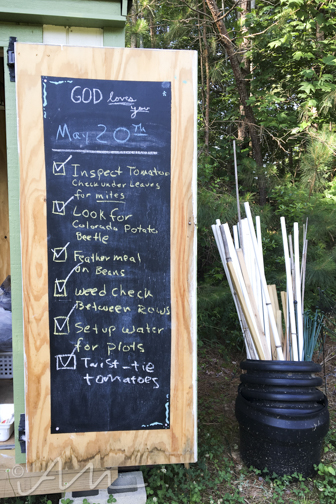 GOD loves
you
May 20th
Inspect Tomatoe
Check under Leaves
for mites
Look for
Colorado Potatoe
Beetle
Feather meal
on Beans
weed check
Between Rows
Setup water
for plots
Twist-tie
tomatoes